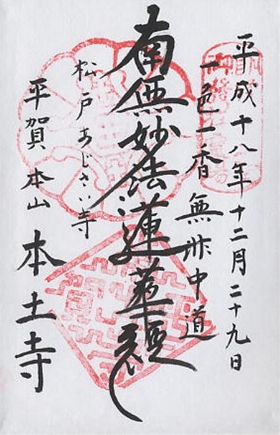 平成十八年十二月二十九日
一色一香無非中道
南無妙法蓮華経
松戸あじさい寺
平賀本山本土寺